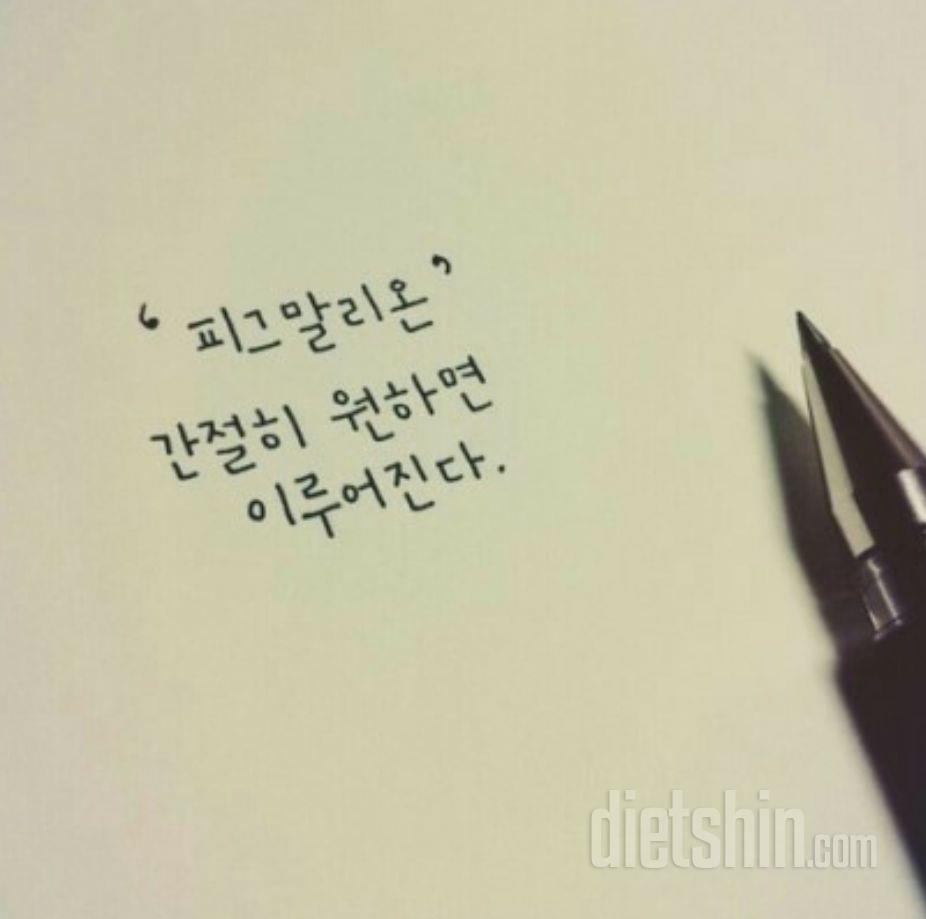 ‘피그말리온’
간절히 원하면
이루어진다.
dietshin.com